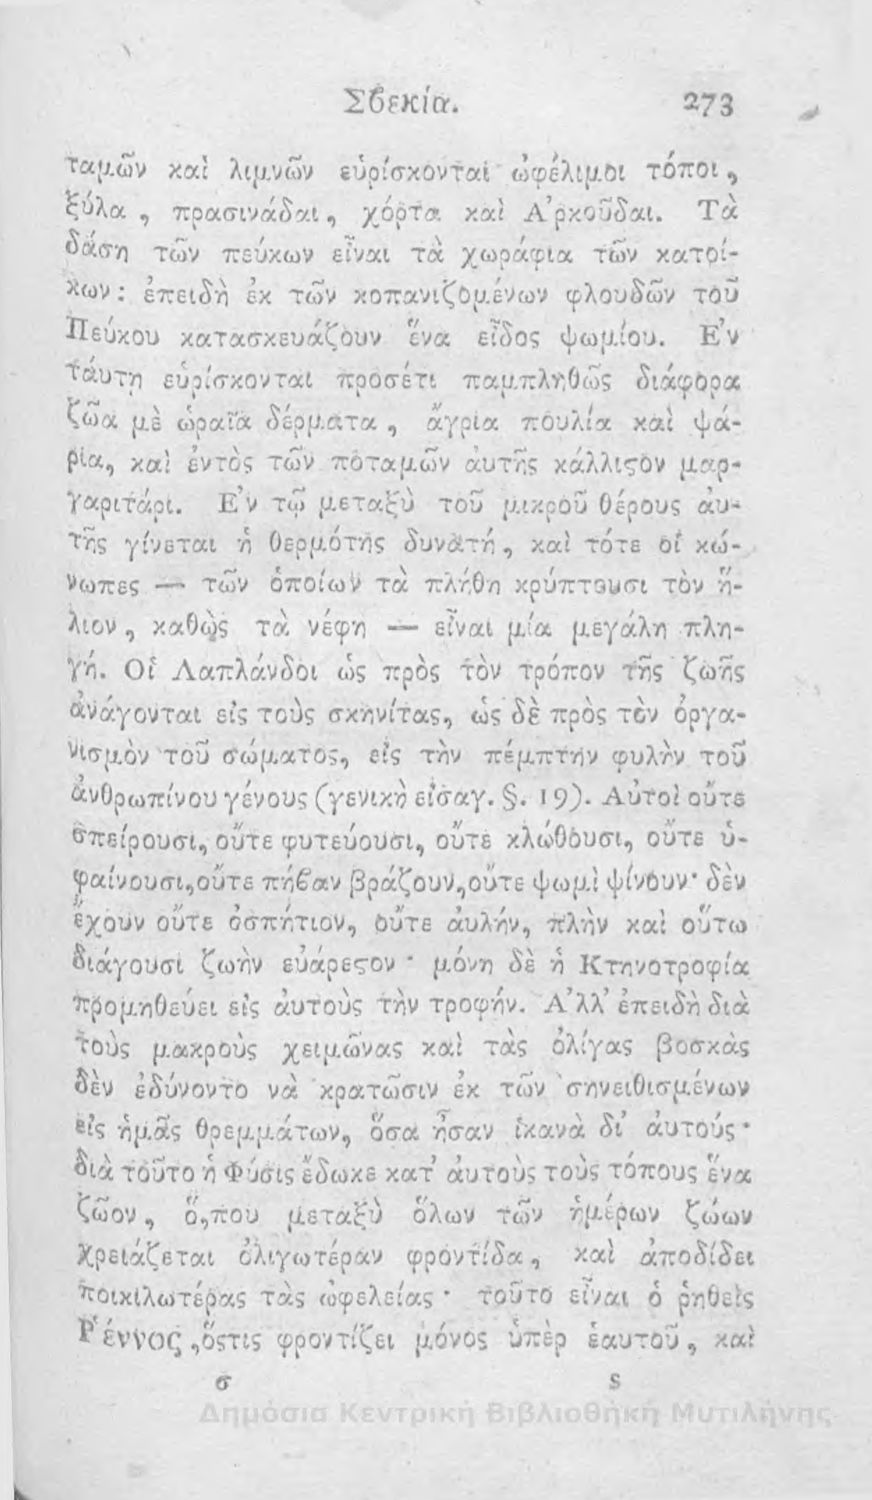 Σϐεκία. 273
ταμῶν καὶ λιμνῶν εὑρίσκονται ὠφέλιμοι τόποι,
ξύλα, πρασινάδαι, χόρτα καὶ Α᾽ρκοῦδαι. Τὰ
δάση τῶν πεύκων εἶναι τὰ χωράφια τῶν κατοί-
κων: ἐπειδὴ ἐκ τῶν κοπανιζομένων φλουδῶν τοῦ
Πεύκου κατασκευάζουν ἕνα εἶδος ψωμίου. Ε᾽ν
τάυτη εὑρίσκονται προσέτι παμπληθῶς διάφορα
ζῶα μὲ ὡραῖα δέρματα, ἄγρια πουλία καὶ ψά-
ρια, καὶ ἐντὸς τῶν ποταμῶν ἀυτῆς κάλλιϛον μαρ-
γαριτάρι. Ε᾽ν τῷ μεταξὺ τοῦ μικροῦ θέρους ἀυ-
τῆς γίνεται ἡ θερμότης δυνατή, καὶ τότε οἱ κώ-
νωπες — τῶν ὁποίων τὰ πλήθη κρύπτουσι τὸν ἥ-
λιον, καθὼς τὰ νέφη — εἶναι μία μεγάλη πλη-
γή. Οἱ Λαπλάνδοι ὡς πρὸς τὸν τρόπον τῆς ζωῆς
ἀνάγονται εἰς τοὺς σκηνίτας, ὡς δὲ πρὸς τὸν ὀργα-
νισμὸν τοῦ σώματος, εἰς τὴν πέμπτην φυλὴν τοῦ
ἀνθρωπίνου γένους (γενικὴ εἰσαγ. §. 19). Αὐτοὶ οὔτε
σπείρουσι, οὔτε φυτεύουσι, οὔτε κλώθουσι, οὔτε ὑ-
φαίνουσι, οὔτε πήϐαν βράζουν, οὔτε ψωμὶ ψίνουν· δὲν
ἔχουν οὔτε ὀσπήτιον, οὔτε ἀυλήν, πλὴν καὶ οὕτω
διάγουσι ζωὴν εὐάρεϛον· μόνη δὲ ἡ Κτηνοτροφία
προμηθεύει εἰς ἀυτοὺς τὴν τροφήν. Α᾽λλ᾽ ἐπειδὴ διὰ
τοὺς μακροὺς χειμῶνας καὶ τὰς ὀλίγας βοσκὰς
δὲν ἐδύνοντο νὰ κρατῶσιν ἐκ τῶν σηνειθισμένων
εἰς ἡμᾶς θρεμμάτων, ὅσα ἦσαν ἱκανὰ δι᾽ ἀυτούς·
διὰ τοῦτο ἡ Φύσις ἔδωκε κατ᾽ ἀυτοὺς τοὺς τόπους ἕνα
ζῶον, ὅ,που μεταξὺ ὅλων τῶν ἡμέρων ζώων
χρειάζεται ὀλιγωτέραν φροντίδα, καὶ ἀποδίδει
ποικιλωτέρας τὰς ὠφελείας· τοῦτο εἶναι ὁ ῥηθεὶς
Ρ῾έννος, ὅϛις φροντίζει μόνος ὑπὲρ ἑαυτοῦ, καὶ
σ S
Δημόσια Κεντρική Βιβλιοθήκη Μυτιλήνης